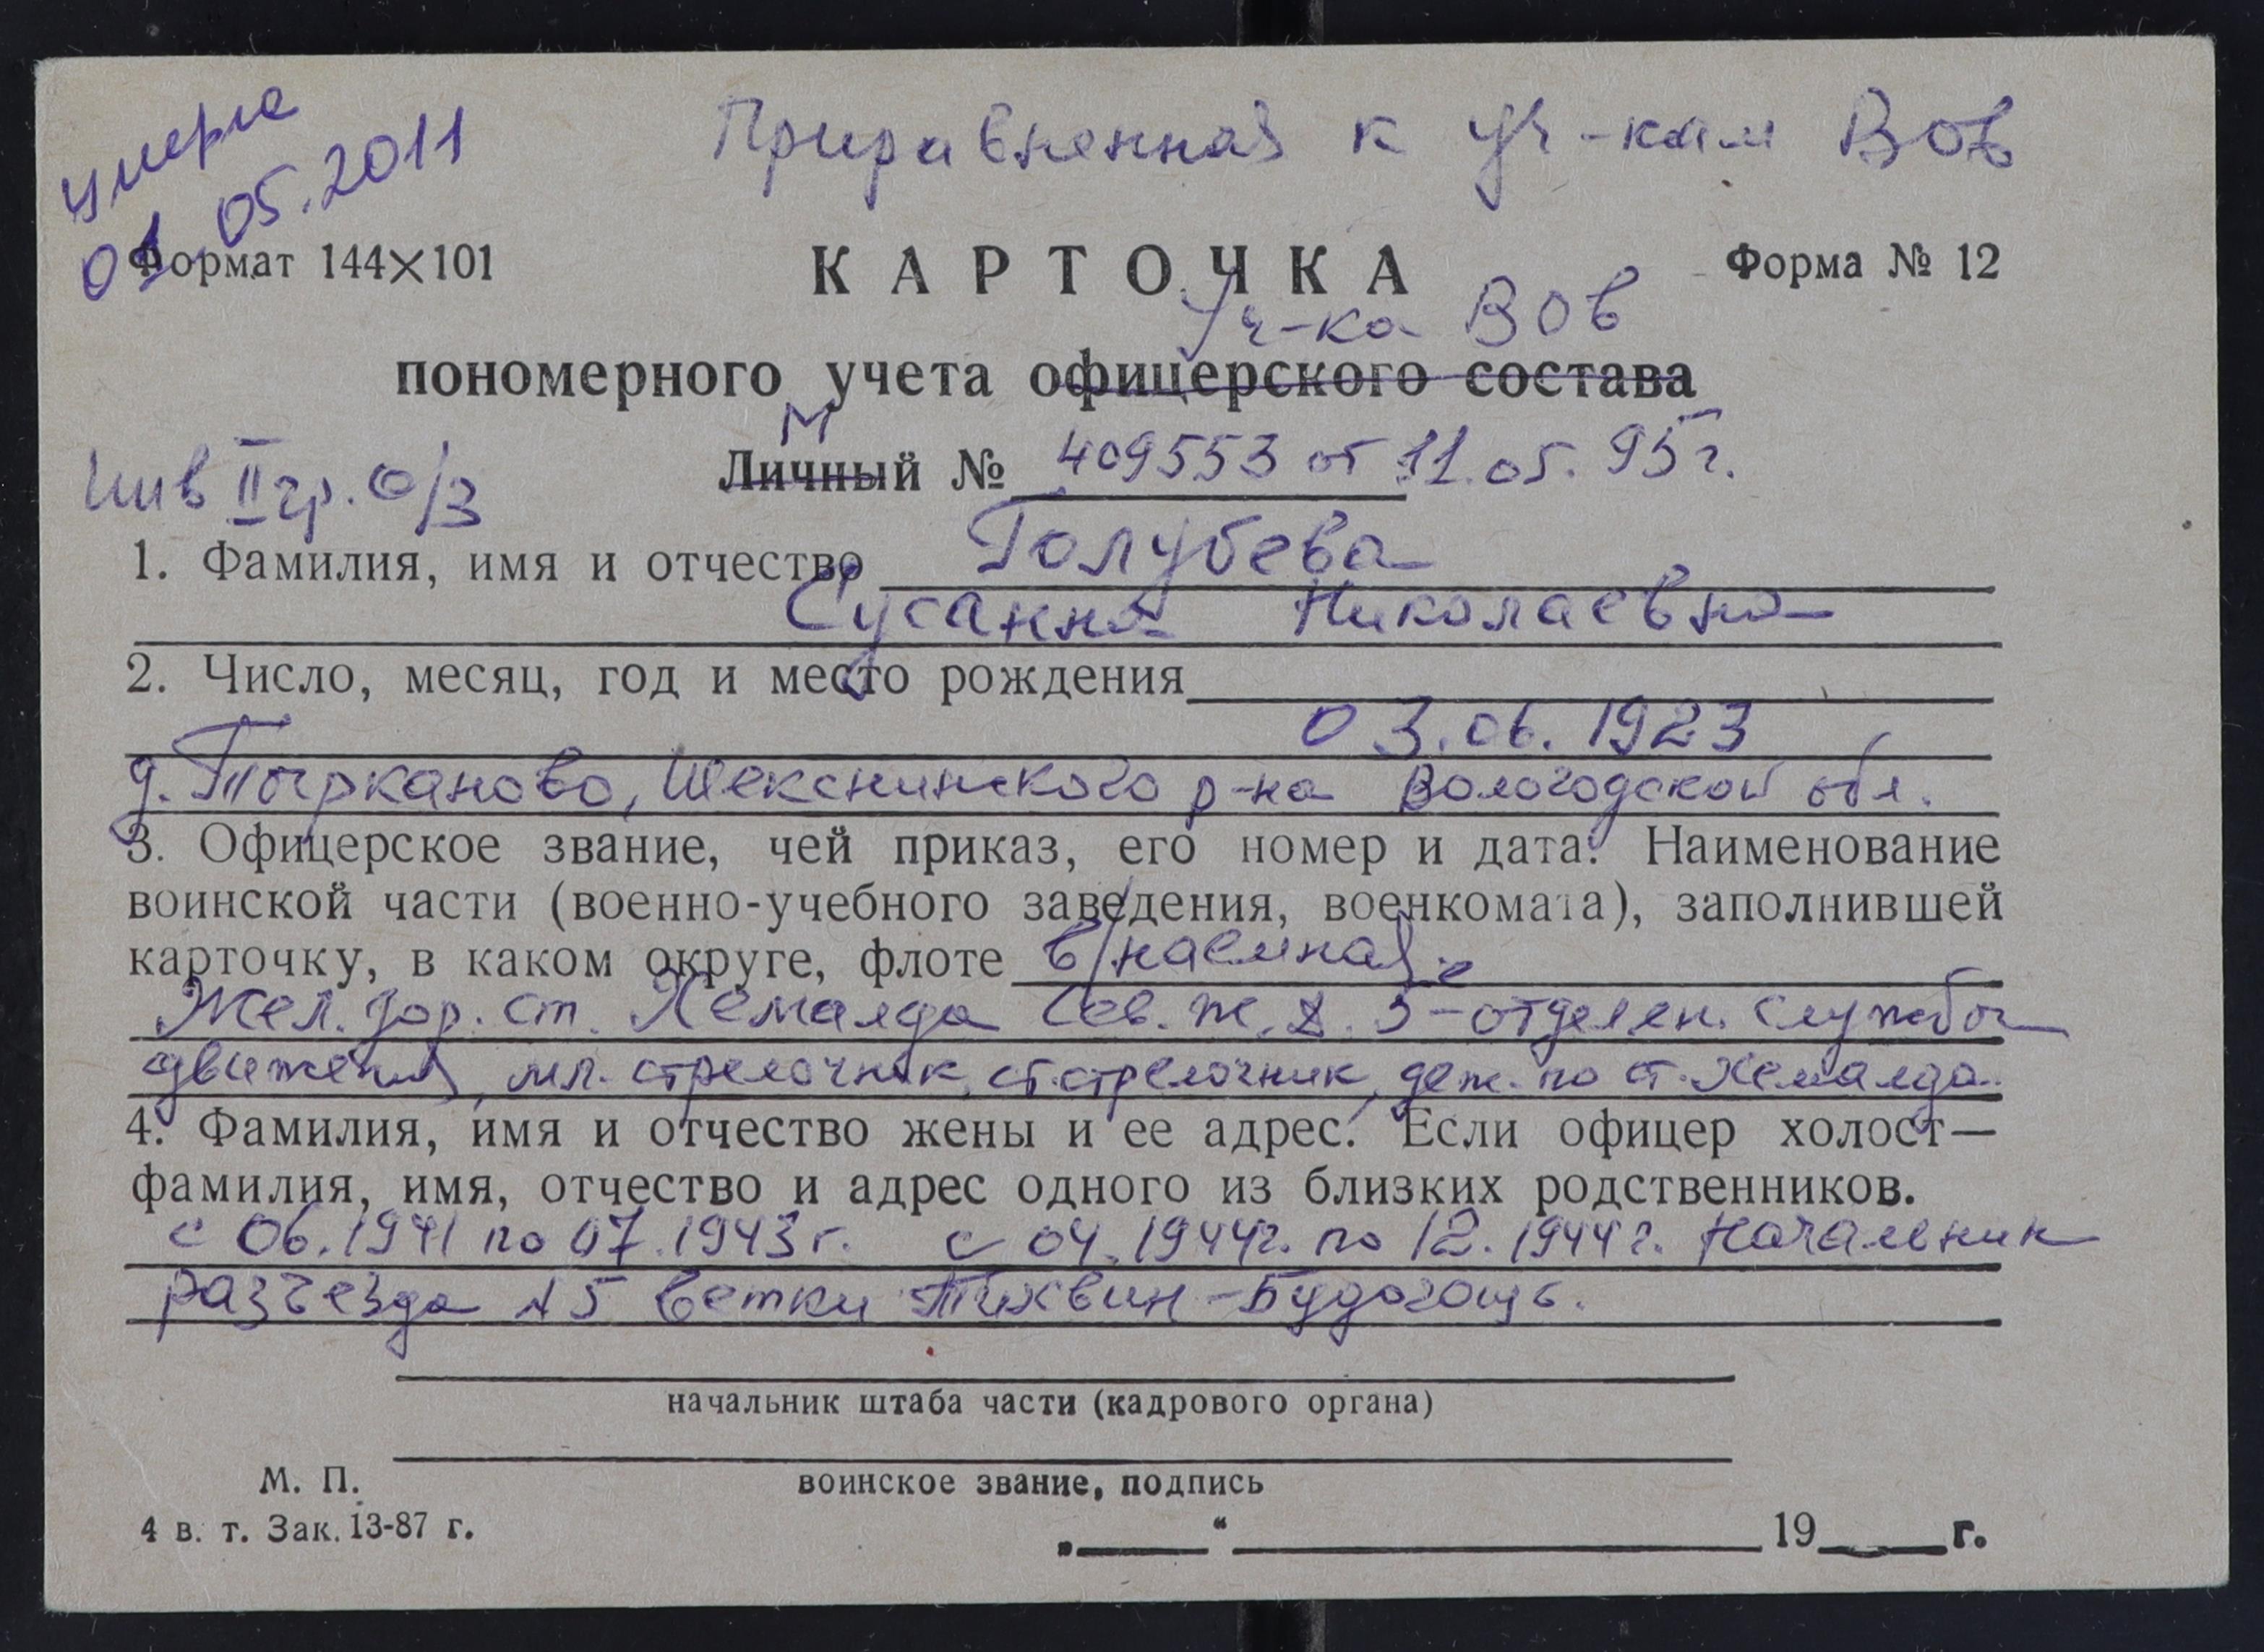 умерла
01.05.2011
Приравненная к уч-кам ВОв
Формат 144×101
КАРТОЧКА
Форма № 12
Уч-ка ВОв
пономерного учета офицерского состава
М
Личный № 409553 от 11.05.95 г.
Инв II гр. о/з
1. Фамилия, имя и отчество Голубева
Сусанна Николаевна
2. Число, месяц, год и место рождения
03.06.1923
д. Тырканово, Шекснинского р-на Вологодской обл.
3. Офицерское звание, чей приказ, его номер и дата. Наименование
воинской части (военно-учебного заведения, военкомата), заполнившей
карточку, в каком округе, флоте в/наемная
Жел. дор. ст. Хемалда Сев. ж. д. 5-отделен. службы
движения, мл. стрелочник, ст. стрелочник, деж. по ст. Хемалда.
4. Фамилия, имя и отчество жены и ее адрес. Если офицер холост—
фамилия, имя, отчество и адрес одного из близких родственников.
с 06.1941 по 07.1943 г. с 04.1944 г. по 12.1944 г. Начальник
разъезда №5 ветки Тихвин-Будогощь.
начальник штаба части (кадрового органа)
воинское звание, подпись
М. П.
4 в. т. Зак. 13-87 г.
„ “ 19 г.